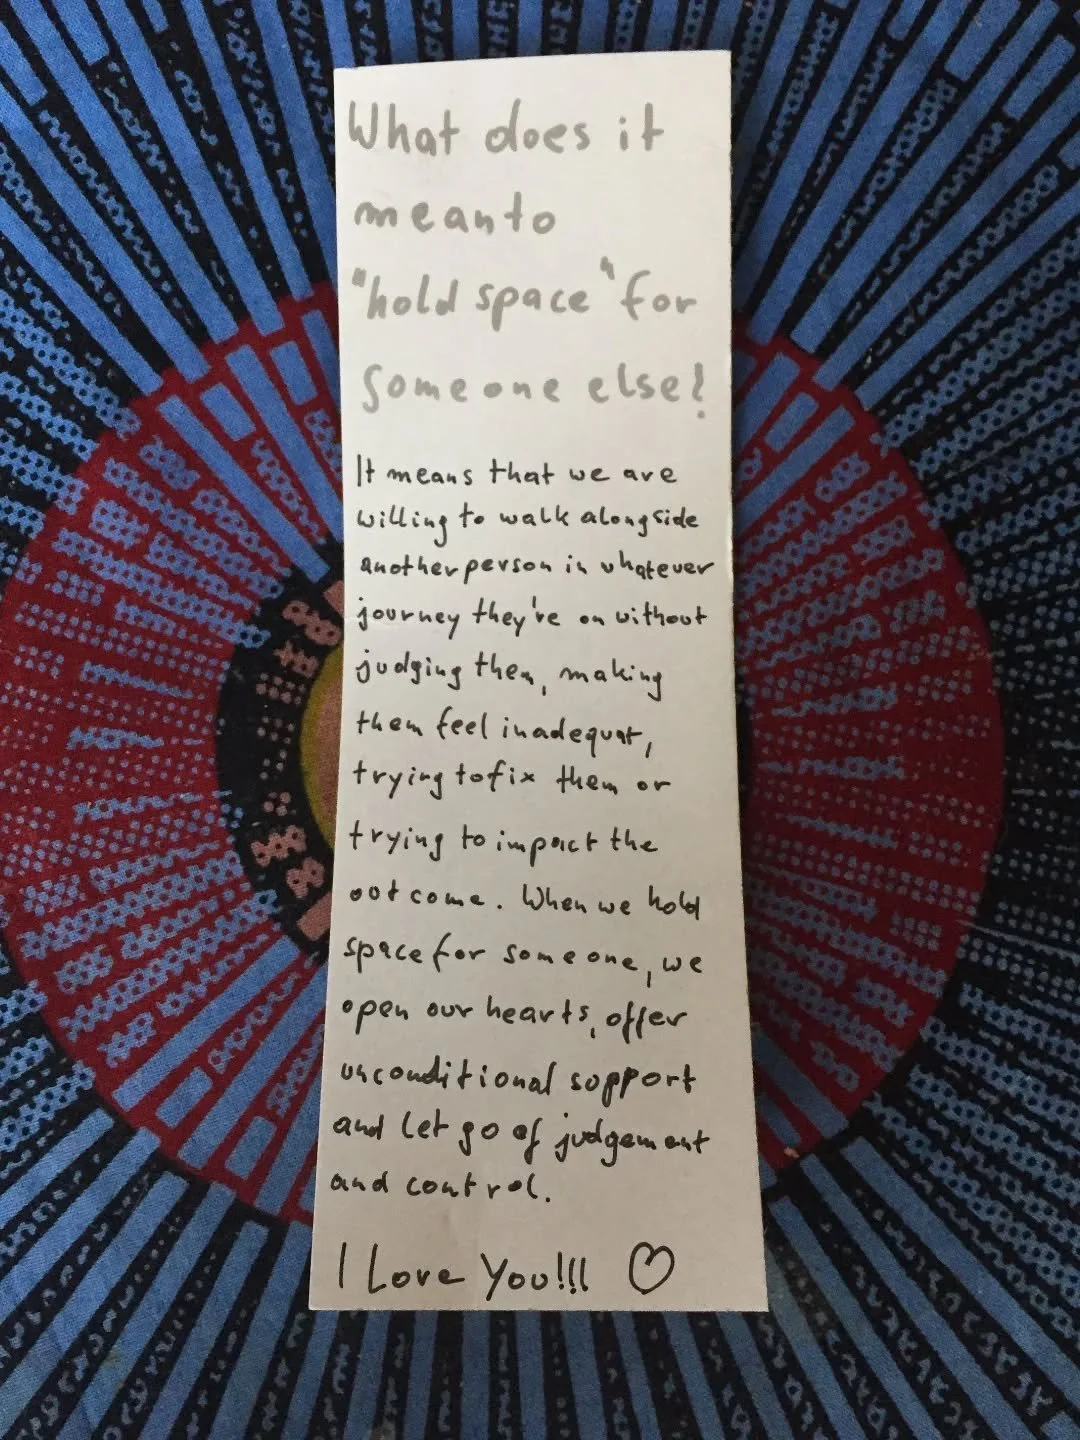 What does it
mean to
"hold space" for
someone else?
It means that we are
willing to walk alongside
another person in whatever
journey they're on without
judging them, making
them feel inadequat,
trying to fix them or
trying to impact the
outcome. When we hold
space for someone, we
open our hearts, offer
unconditional support
and let go of judgement
and control.
I Love You!!! ♡